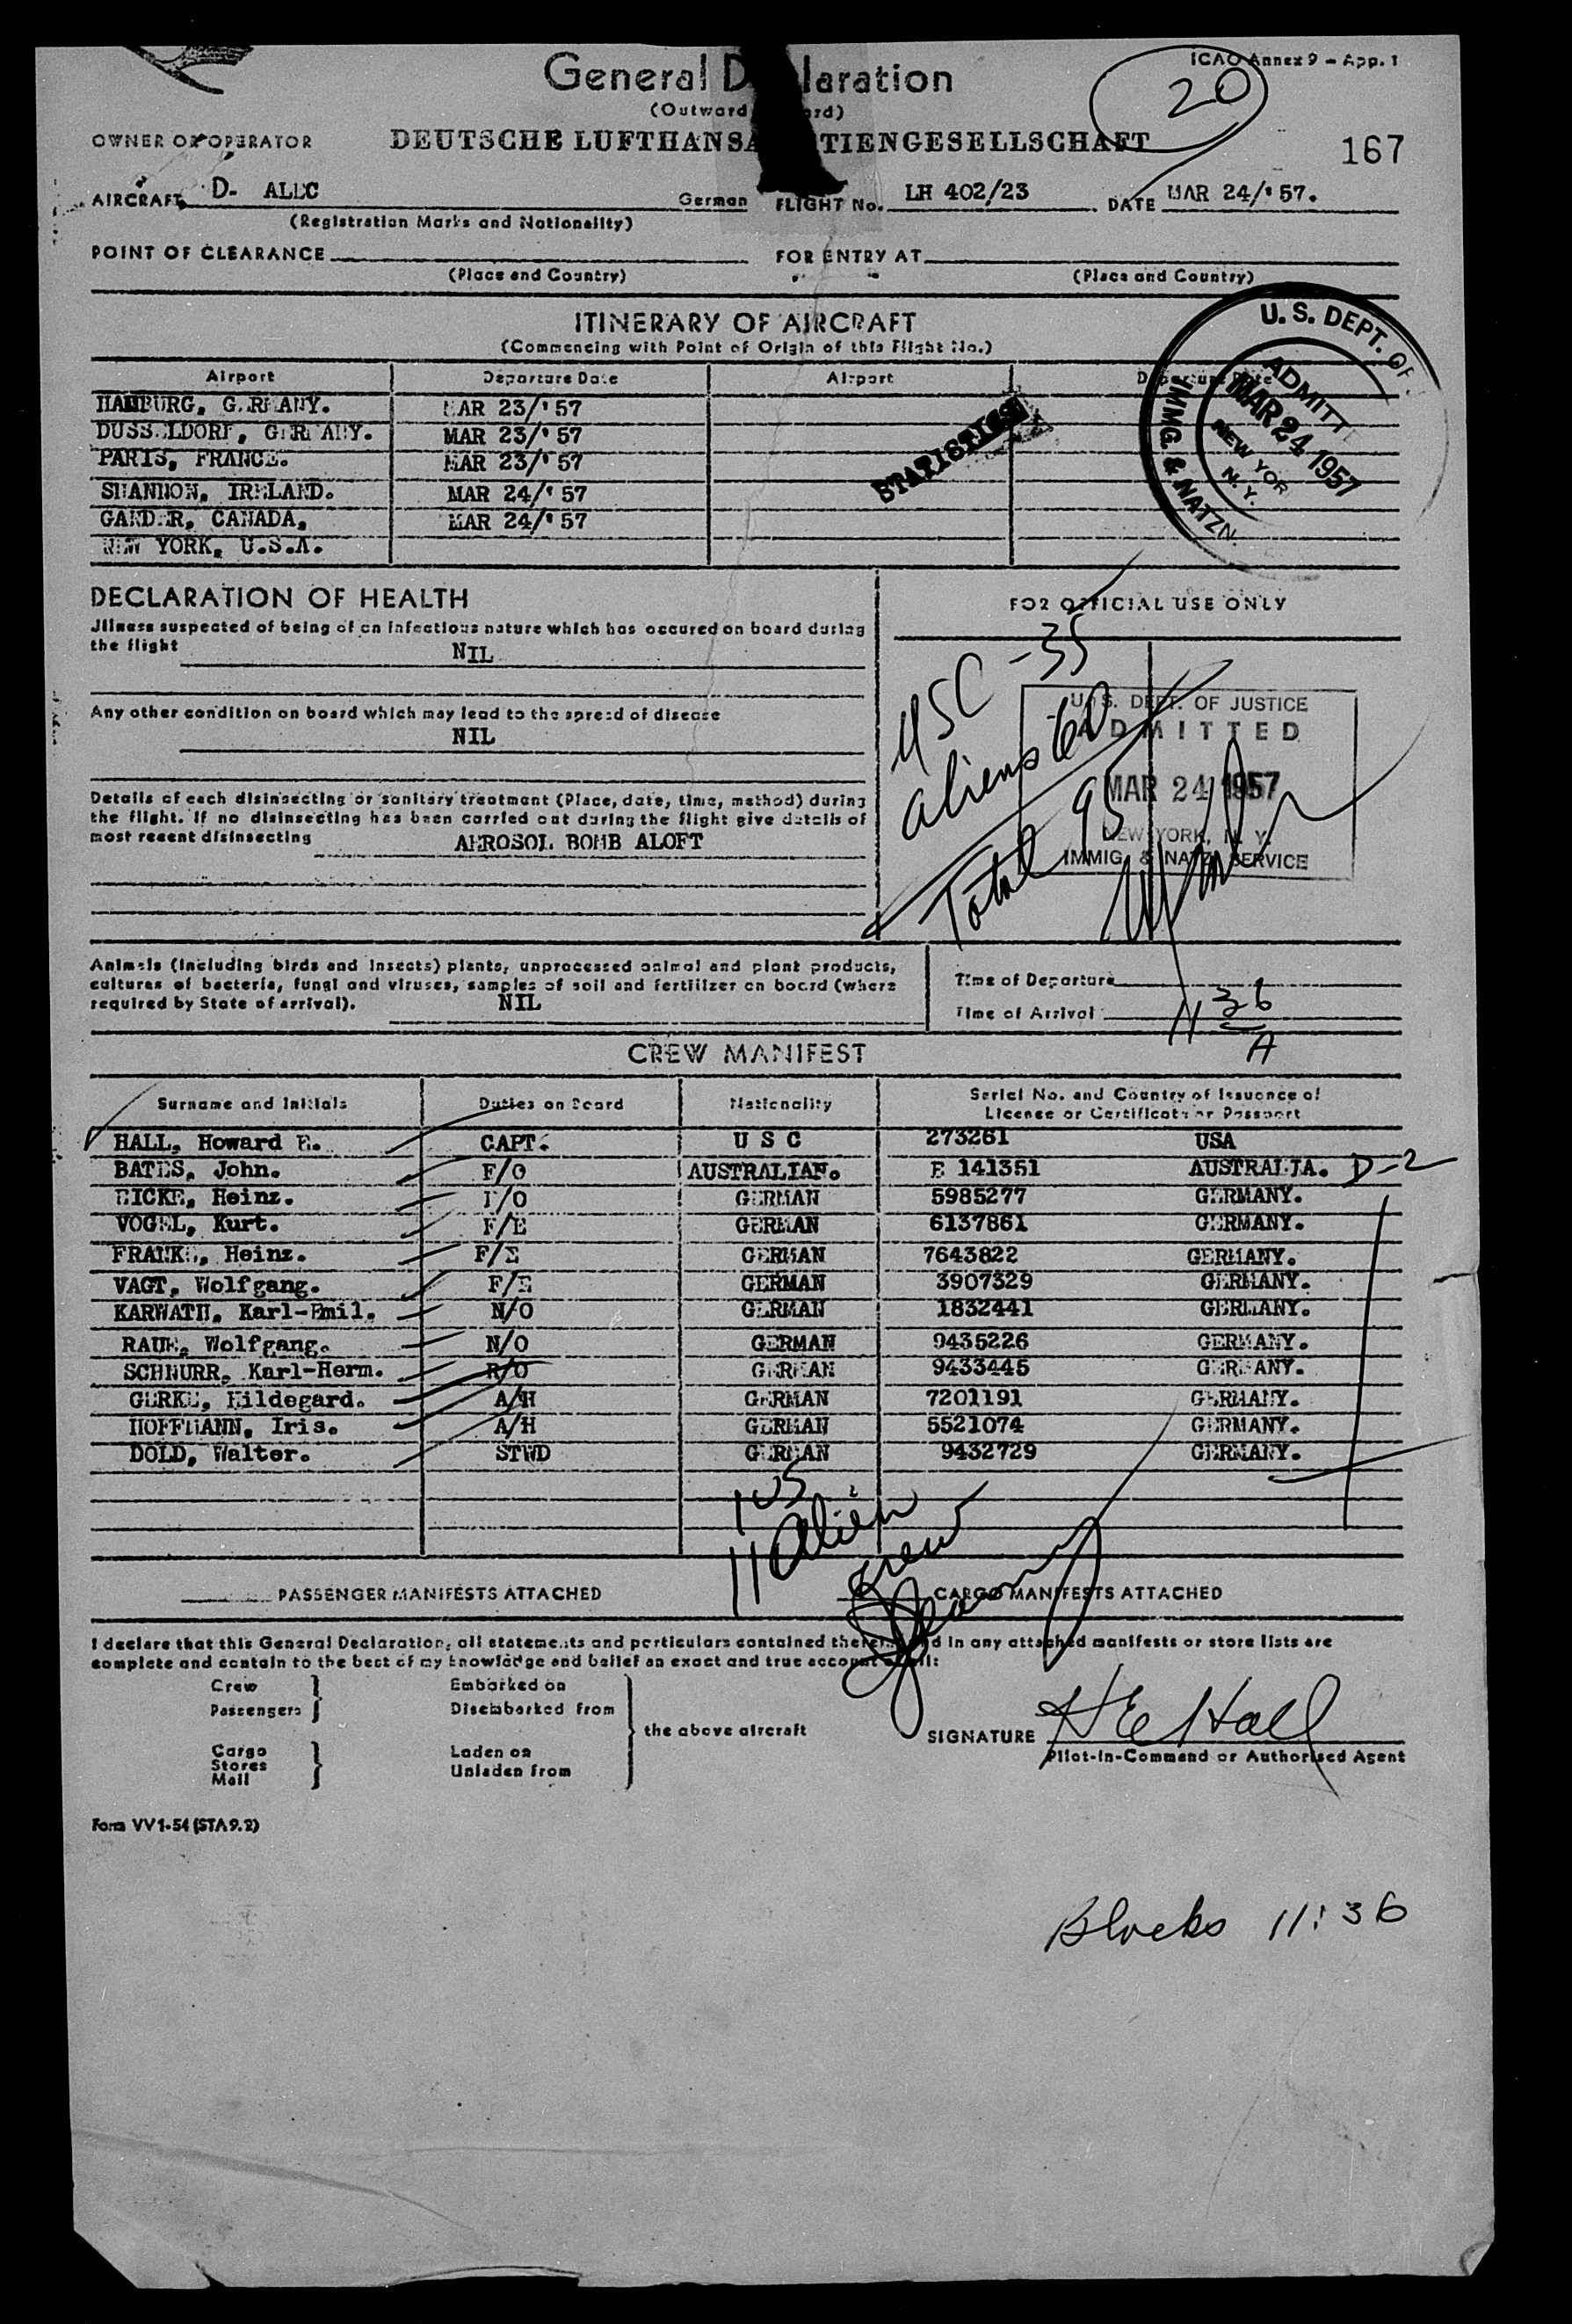 ICAO Annex 9 - App. 1
General Declaration
20
(Outward
OWNER OR OPERATOR DEUTSCHE LUFTHANSA AKTIENGESELLSCHAFT
167
AIRCRAFT D- ALEC German FLIGHT No. LH 402/23 DATE MAR 24/'57.
(Registration Marks and Nationality)
POINT OF CLEARANCE FOR ENTRY AT
(Place and Country) (Place and Country)
ITINERARY OF AIRCRAFT
(Commencing with Point of Origin of this Flight No.)
Airport Departure Date Airport Departure Date
HAMBURG, GERMANY. MAR 23/'57
DUSSELDORF, GERMANY. MAR 23/'57
PARIS, FRANCE. MAR 23/'57
SHANNON, IRELAND. MAR 24/'57
GANDER, CANADA, MAR 24/'57
NEW YORK, U.S.A.
STATISTICS
U. S. DEPT. OF
IMMIG. & NATZN.
ADMITT
MAR 24 1957
NEW YOR
N. Y.
DECLARATION OF HEALTH
FOR OFFICIAL USE ONLY
Illness suspected of being of an infectious nature which has occured on board during
the flight NIL
Any other condition on board which may lead to the spread of disease
NIL
Details of each disinsecting or sanitary treatment (Place, date, time, method) during
the flight. If no disinsecting has been carried out during the flight give details of
most recent disinsecting AEROSOL BOMB ALOFT
USC - 35
aliens 60
Total 95
U. S. DEPT. OF JUSTICE
ADMITTED
MAR 24 1957
NEW YORK, N. Y.
IMMIG. & NATZ. SERVICE
Animals (including birds and insects) plants, unprocessed animal and plant products,
cultures of bacteria, fungi and viruses, samples of soil and fertilizer on board (where
required by State of arrival). NIL
Time of Departure
Time of Arrival 11 36 A
CREW MANIFEST
Surname and Initials Duties on Board Nationality Serial No. and Country of Issuance of
License or Certificate or Passport
HALL, Howard E. CAPT. U S C 273261 USA
BATES, John. F/O AUSTRALIAN. E 141351 AUSTRALIA. D-2
EICKE, Heinz. F/O GERMAN 5985277 GERMANY.
VOGEL, Kurt. F/E GERMAN 6137861 GERMANY.
FRANKE, Heinz. F/E GERMAN 7643822 GERMANY.
VAGT, Wolfgang. F/E GERMAN 3907329 GERMANY.
KARWATH, Karl-Emil. N/O GERMAN 1832441 GERMANY.
RAUE, Wolfgang. N/O GERMAN 9435226 GERMANY.
SCHNURR, Karl-Herm. R/O GERMAN 9433445 GERMANY.
GERKE, Hildegard. A/H GERMAN 7201191 GERMANY.
HOFFMANN, Iris. A/H GERMAN 5521074 GERMANY.
DOLD, Walter. STWD GERMAN 9432729 GERMANY.
1 US
11 alien
crew
PASSENGER MANIFESTS ATTACHED CARGO MANIFESTS ATTACHED
I declare that this General Declaration, all statements and particulars contained therein and in any attached manifests or store lists are
complete and contain to the best of my knowledge and belief an exact and true account of all:
Crew Embarked on
Passengers Disembarked from
the above aircraft
Cargo Laden on
Stores Unladen from
Mail
SIGNATURE H E Hall
Pilot-in-Command or Authorised Agent
Form VV1-54 (STA 9.2)
Blocks 11:36